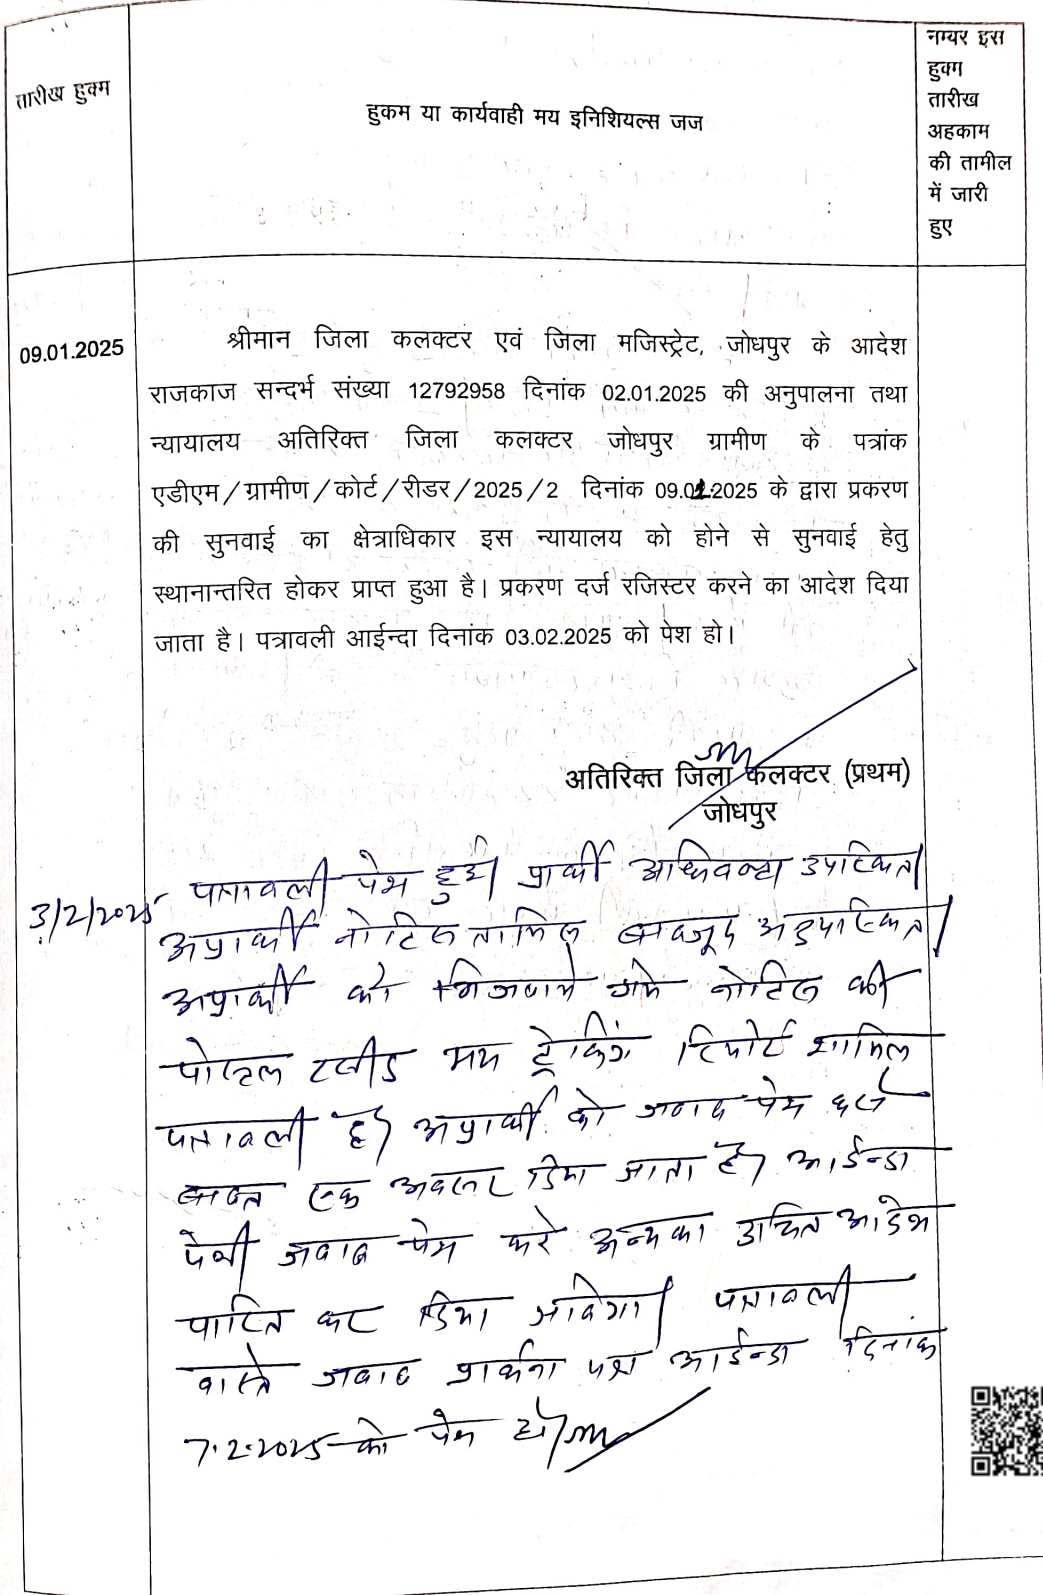 तारीख हुक्म
हुकम या कार्यवाही मय इनिशियल्स जज
नम्बर इस
हुक्म
तारीख
अहकाम
की तामील
में जारी
हुए
09.01.2025
श्रीमान जिला कलक्टर एवं जिला मजिस्ट्रेट, जोधपुर के आदेश
राजकाज सन्दर्भ संख्या 12792958 दिनांक 02.01.2025 की अनुपालना तथा
न्यायालय अतिरिक्त जिला कलक्टर जोधपुर ग्रामीण के पत्रांक
एडीएम/ग्रामीण/कोर्ट/रीडर/2025/2 दिनांक 09.01.2025 के द्वारा प्रकरण
की सुनवाई का क्षेत्राधिकार इस न्यायालय को होने से सुनवाई हेतु
स्थानान्तरित होकर प्राप्त हुआ है। प्रकरण दर्ज रजिस्टर करने का आदेश दिया
जाता है। पत्रावली आईन्दा दिनांक 03.02.2025 को पेश हो।
अतिरिक्त जिला कलक्टर (प्रथम)
जोधपुर
3/2/2025
पत्रावली पेश हुई। प्रार्थी अधिवक्ता उपस्थित।
अप्रार्थी नोटिस तामिल बावजूद अनुपस्थित।
अप्रार्थी को भिजवाये गये नोटिस की
पोस्टल रसीद मय ट्रेकिंग रिपोर्ट शामिल
पत्रावली है। अप्रार्थी को जवाब पेश
एक अवसर दिया जाता है। आईन्दा
पेशी जवाब पेश करे अन्यथा उचित आदेश
पारित कर दिया जावेगा। पत्रावली
वास्ते जवाब प्रार्थना पत्र आईन्दा दिनांक
7.2.2025 को पेश हो।